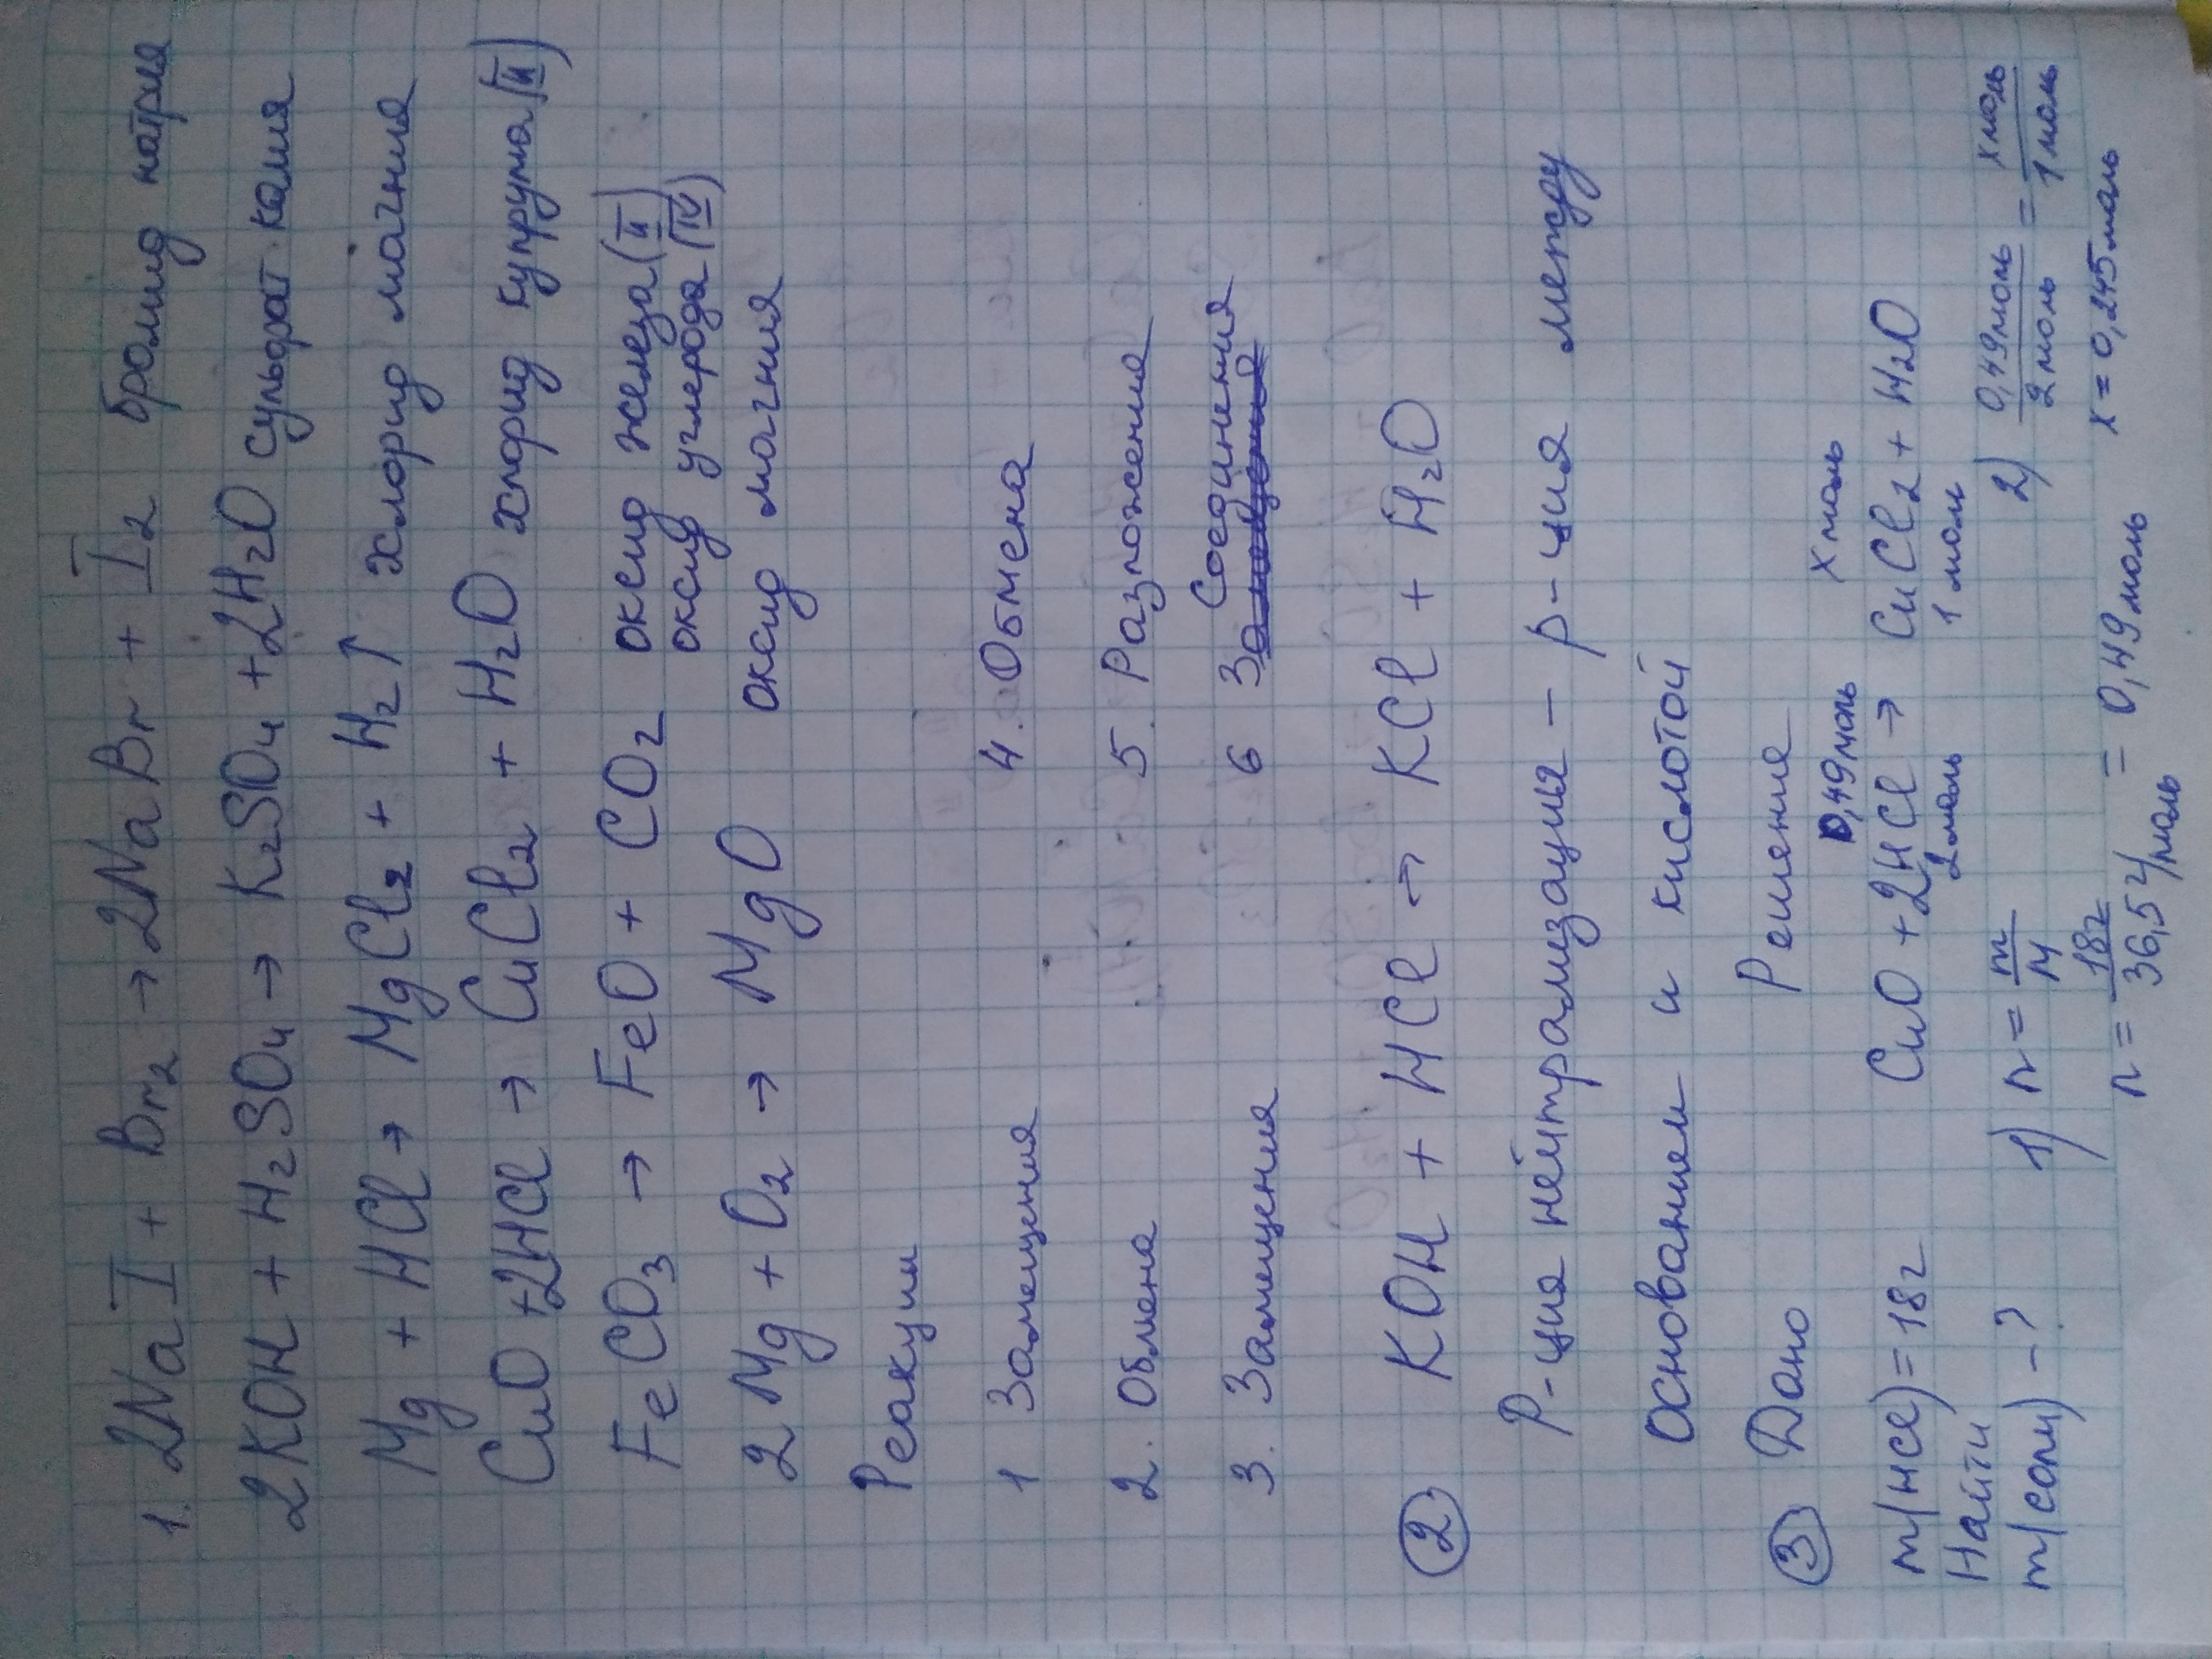 1. 2NaI + Br₂ → 2NaBr + I₂ бромид натрия
2KOH + H₂SO₄ → K₂SO₄ + 2H₂O сульфат калия
Mg + HCl → MgCl₂ + H₂↑ хлорид магния
CuO + 2HCl → CuCl₂ + H₂O хлорид купрума (II)
FeCO₃ → FeO + CO₂ оксид железа (II)
оксид углерода (IV)
2Mg + O₂ → MgO оксид магния
Реакции
1 Замещения 4. Обмена
2. Обмена 5. Разложения
Соединения
3. Замещения 6
② KOH + HCl → KCl + H₂O
Р-ция нейтрализации – р-ция между
Основанием и кислотой
③ Дано Решение
0,49моль x моль
m(HCl) = 18г CuO + 2HCl → CuCl₂ + H₂O
2моль 1 моль
Найти
m(соли) - ?
1) n = m/M 2) 0,49моль/2 моль = x моль/1 моль
n = 18г/36,5г/моль = 0,49 моль x = 0,245моль